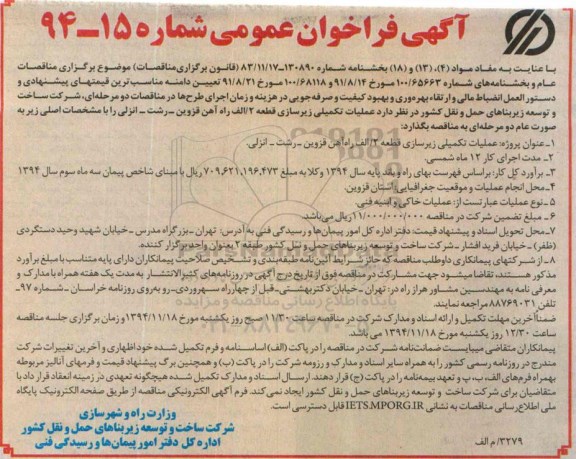 آگهی فراخوان عمومی شماره ۱۵-۹۴
با عنایت به مفاد مواد (۴)، (۱۳) و (۱۸) بخشنامه شماره ۱۳۰۸۹۰-۸۳/۱۱/۱۷ (قانون برگزاری مناقصات) موضوع برگزاری مناقصات
عام و بخشنامه‌های شماره ۱۰۰/۶۵۶۶۳ مورخ ۹۱/۸/۱۴ و ۱۰۰/۶۸۱۱۸ مورخ ۹۱/۸/۲۱ تعیین دامنه مناسب‌ترین قیمتهای پیشنهادی و
دستورالعمل انضباط مالی و ارتقاء بهره‌وری و بهبود کیفیت و صرفه‌جویی در هزینه و زمان اجرای طرح‌ها در مناقصات دو مرحله‌ای، شرکت ساخت
و توسعه زیربناهای حمل و نقل کشور در نظر دارد عملیات تکمیلی زیرسازی قطعه ۲/الف راه آهن قزوین - رشت - انزلی را با مشخصات اصلی زیر به
صورت عام دو مرحله‌ای به مناقصه بگذارد:
۱- عنوان پروژه: عملیات تکمیلی زیرسازی قطعه ۲/الف راه‌آهن قزوین - رشت - انزلی.
۲- مدت اجرای کار ۱۲ ماه شمسی.
۳- برآورد کل کار: براساس فهرست بهای راه و باند پایه سال ۱۳۹۴ و کلا به مبلغ ۷۰۹,۶۲۱,۱۹۶,۴۷۳ ریال با مبنای شاخص پیمان سه ماه سوم سال ۱۳۹۴
۴- محل انجام عملیات و موقعیت جغرافیایی: استان قزوین.
۵- نوع عملیات عبارتست از: عملیات خاکی و ابنیه فنی.
۶- مبلغ تضمین شرکت در مناقصه ۱۱/۰۰۰/۰۰۰/۰۰۰ ریال می‌باشد.
۷- محل تحویل اسناد و پیشنهاد قیمت: دفتر اداره کل امور پیمان‌ها و رسیدگی فنی به آدرس: تهران - بزرگراه مدرس - خیابان شهید وحید دستگردی
(ظفر) - خیابان فرید افشار - شرکت ساخت و توسعه زیربناهای حمل و نقل کشور طبقه ۲ بعنوان واحد برگزار کننده.
۸- از شرکتهای پیمانکاری داوطلب مناقصه که حائز شرایط آئین‌نامه طبقه‌بندی و تشخیص صلاحیت پیمانکاران دارای پایه متناسب با مبلغ برآورد
مذکور هستند، تقاضا میشود جهت مشارکت در مناقصه فوق از تاریخ درج آگهی در روزنامه‌های کثیرالانتشار به مدت یک هفته همراه با مدارک و
معرفی نامه به مهندسین مشاور هراز راه در: تهران - خیابان دکتر بهشتی - قبل از چهارراه سهروردی - رو به روی روزنامه خراسان - شماره ۹۷-
تلفن ۸۸۷۶۹۰۳۱ مراجعه نمایند.
ضمناً آخرین مهلت تکمیل و ارائه اسناد و مدارک شرکت در مناقصه ساعت ۱۱/۳۰ صبح روز یکشنبه مورخ ۱۳۹۴/۱۱/۱۸ و زمان برگزاری جلسه مناقصه
ساعت ۱۲/۳۰ روز یکشنبه مورخ ۱۳۹۴/۱۱/۱۸ می باشد.
پیمانکاران متقاضی میبایست ضمانت‌نامه شرکت در مناقصه را در پاکت (الف) اساسنامه و فرم تکمیل شده خوداظهاری و آخرین تغییرات شرکت
مندرج در روزنامه رسمی کشور را به همراه سایر اسناد و مدارک و رزومه شرکت را در پاکت (ب) و همچنین برگ پیشنهاد قیمت و فرمهای آنالیز مربوطه
بهمراه فرم‌های الف، ب، پ و تعهد بیمه‌نامه را در پاکت (ج) قرار دهند. ارسال اسناد و مدارک تکمیل شده هیچگونه تعهدی در زمینه انعقاد قرارداد با
متقاضیان برای شرکت ساخت و توسعه زیربناهای حمل و نقل کشور ایجاد نمی‌کند. فرم آگهی الکترونیکی مناقصه از طریق صفحه الکترونیک پایگاه
ملی اطلاع رسانی مناقصات به نشانی IETS.MPORG.IR قابل دسترسی است.
وزارت راه و شهرسازی
شرکت ساخت و توسعه زیربناهای حمل و نقل کشور
اداره کل دفتر امور پیمان‌ها و رسیدگی فنی
۳۲۷۹/م الف